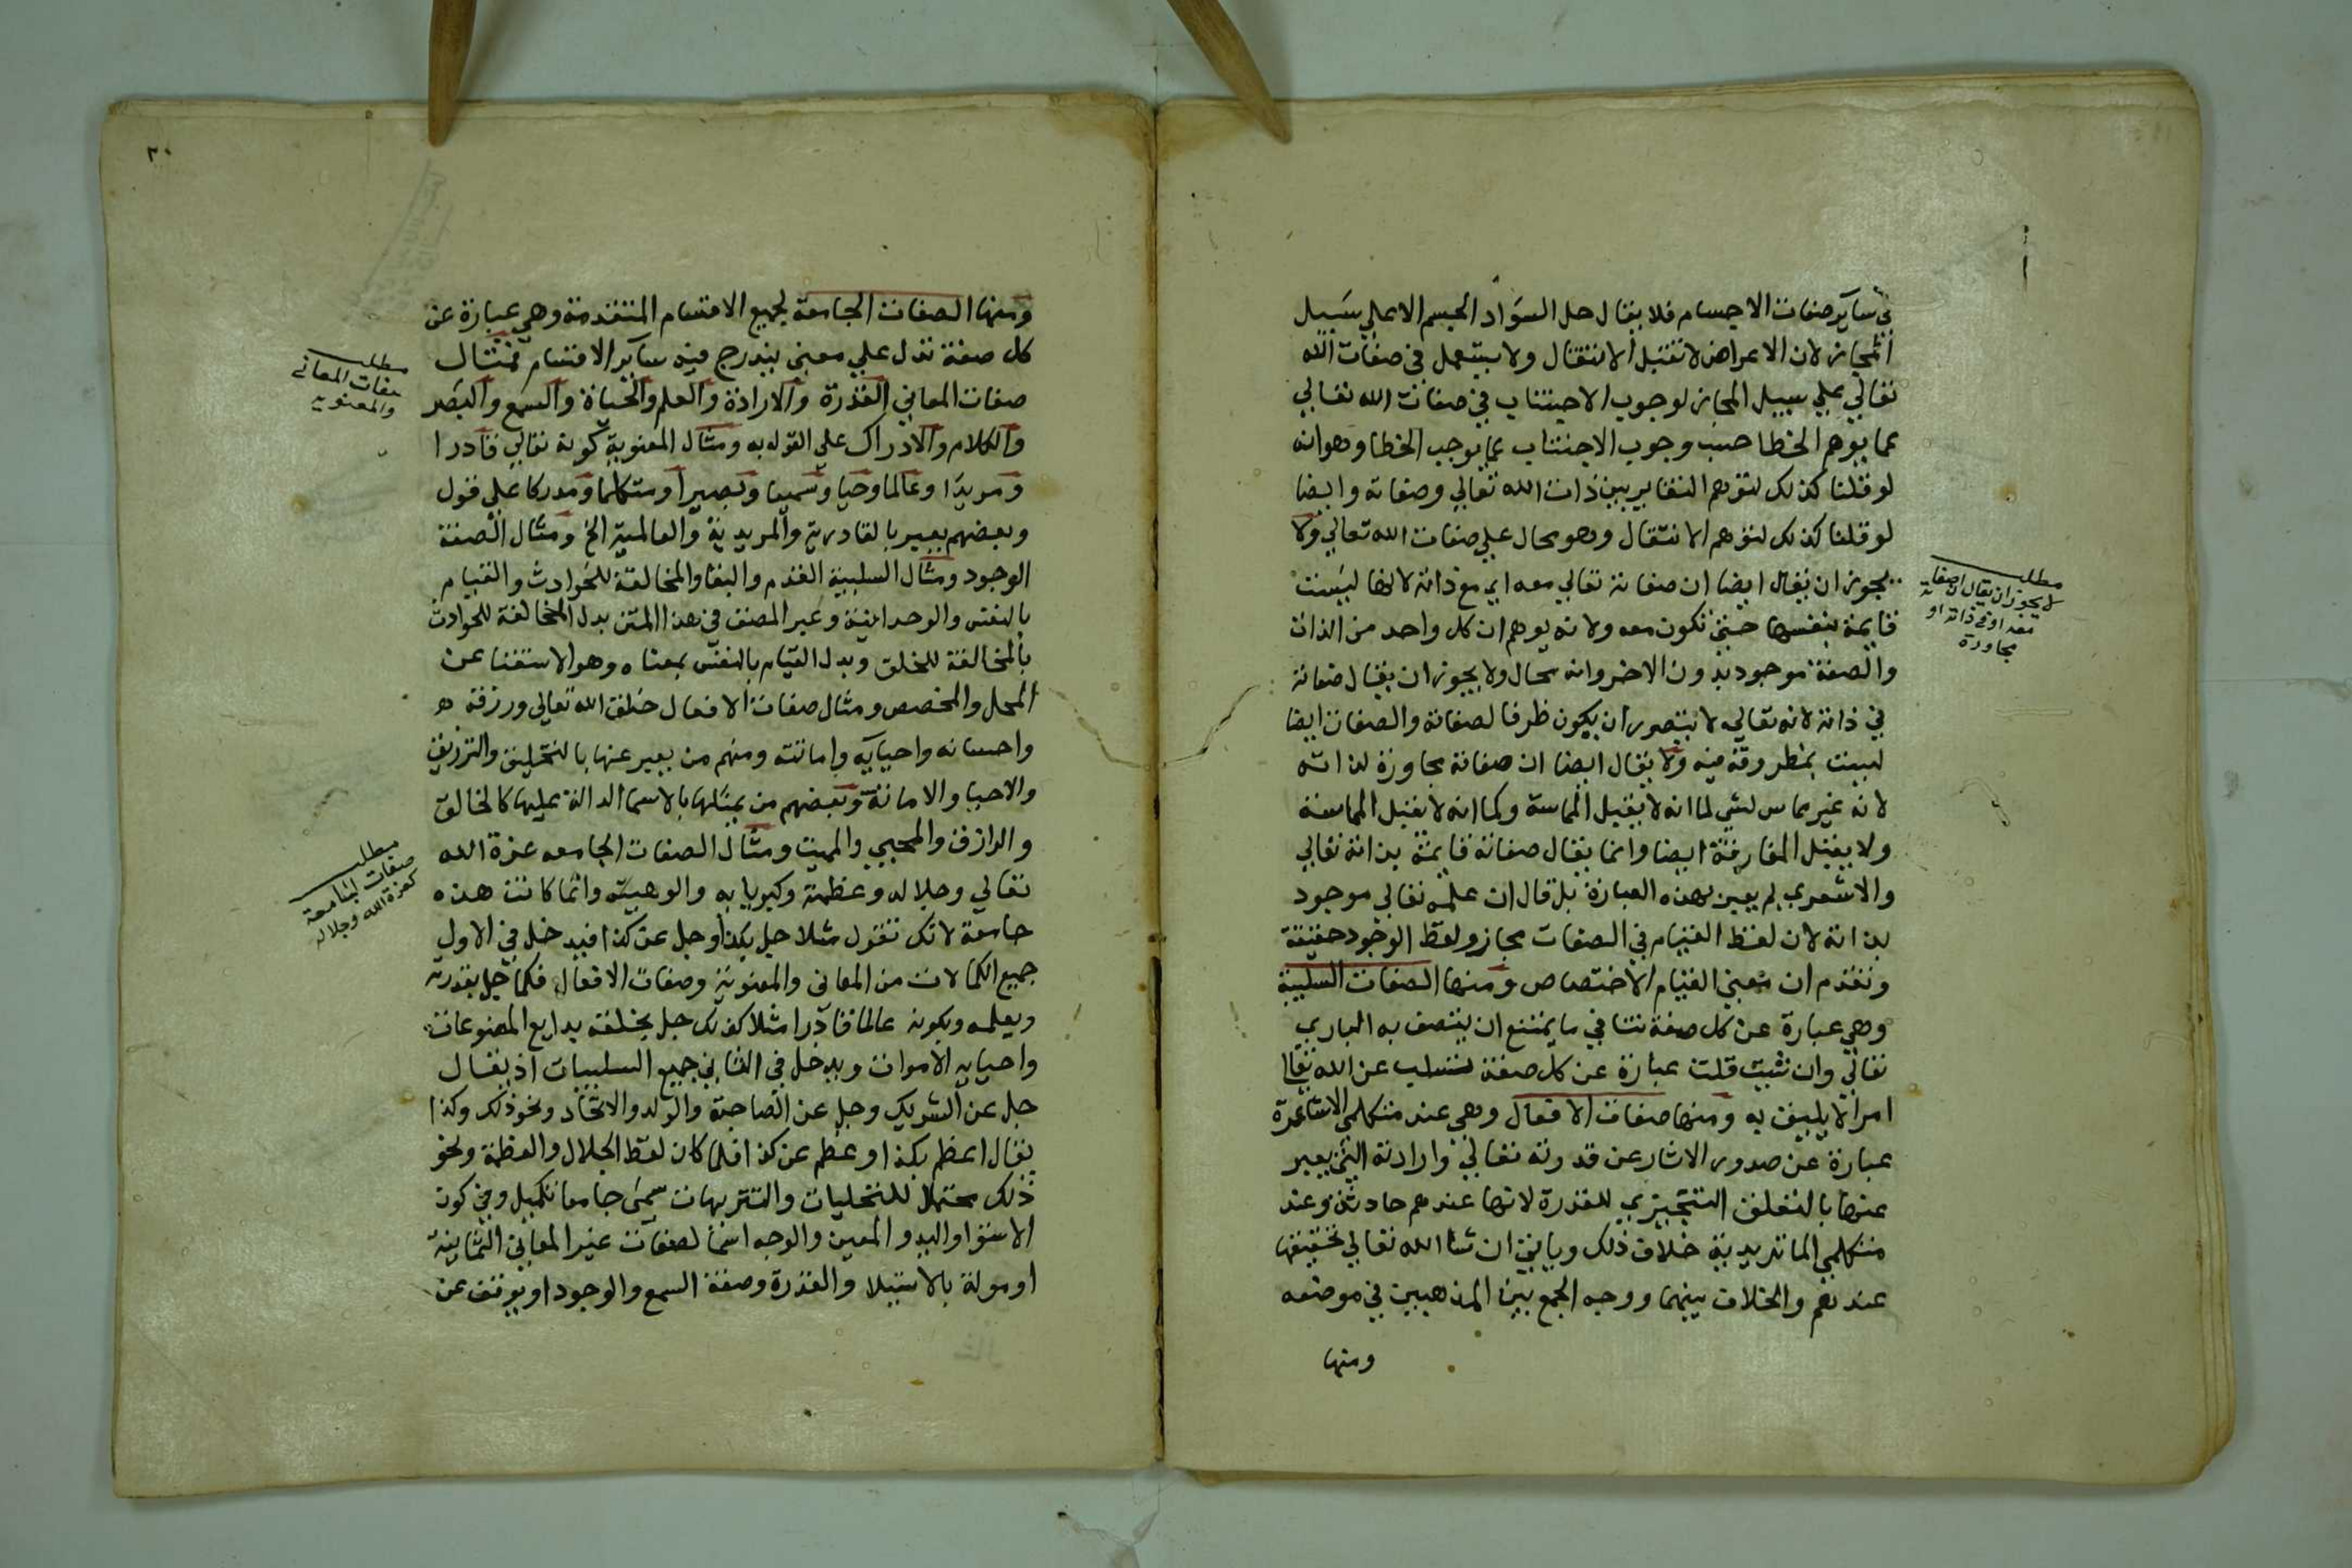 في ساير صفات الاجسام فلا يقال حل السواد الجسم الا علي سبيل
المجاز لان الاعراض لا تقبل الانتقال ولا يستعمل في صفات الله
تعالي علي سبيل المجاز لوجوب الاجتناب في صفات الله تعالي
عما يوهم الخطا حسب وجوب الاجتناب عما يوجب الخطا وهو انه
لو قلنا كذلك لتوهم التغاير بين ذات الله تعالي وصفاته وايضا
لو قلنا كذلك لتوهم الانتقال وهو محال علي صفات الله تعالي ولا
يجوز ان يقال ايضا ان صفاته تعالي معه اي مع ذاته لانها ليست
قايمة بنفسها حتي تكون معه ولانه يوهم ان كل واحد من الذات
والصفة موجود بدون الاخر وانه محال ولا يجوز ان يقال صفاته
في ذاته لانه تعالي لا يتصور ان يكون ظرفا لصفاته والصفات ايضا
ليست بمظروفة فيه ولا يقال ايضا ان صفاته مجاورة لذاته
لانه غير مماس لشي لما انه لا يقبل المماسة وكما انه لا يقبل المماسة
ولا يقبل المفارقة ايضا وانما يقال صفاته قايمة بذاته تعالي
والاشعري لم يعبر بهذه العبارة بل قال ان علمه تعالي موجود
بذاته لان لفظ القيام في الصفات مجاز ولفظ الوجود حقيقة
وتقدم ان معني القيام الاختصاص ومنها الصفات السلبية
وهي عبارة عن كل صفة تنافي ما يمتنع ان يتصف به الباري
تعالي وان شيت قلت عبارة عن كل صفة تسلب عن الله تعالي
امرا لا يليق به ومنها صفات الافعال وهي عند متكلمي الاشاعرة
عبارة عن صدور الاثار عن قدرته تعالي وارادته التي يعبر
عنها بالتعلق التنجيزي للقدرة لانها عندهم حادثة وعند
متكلمي الماتريدية خلاف ذلك وياتي ان شا الله تعالي تحقيقها
عندهم والخلاف بينهما ووجه الجمع بين المذهبين في موضعه
ومنها
مطلب
لا يجوز ان يقال ان صفاته
معه او في ذاته او
مجاورة
٣٠
ومنها الصفات الجامعة لجميع الاقسام المتقدمة وهي عبارة عن
كل صفة تدل علي معني يندرج فيه ساير الاقسام فمثال
صفات المعاني القدرة والارادة والعلم والحياة والسمع والبصر
والكلام والادراك علي القول به ومثال المعنوية كونه تعالي قادرا
ومريدا وعالما وحيا وسميعا وبصيرا ومتكلما ومدركا علي قول
وبعضهم يعبر بالقادرية والمريدية والعالمية الخ ومثال الصفة
الوجود ومثال السلبية القدم والبقا والمخالفة للحوادث والقيام
بالنفس والوحدانية وعبر المصنف في هذا المتن بدل المخالفة للحوادث
بالمخالفة للخلق وبدل القيام بالنفس بمعناه وهو الاستغنا عن
المحل والمخصص ومثال صفات الافعال خلق الله تعالي ورزقه
واحسانه واحيايه واماتته ومنهم من يعبر عنها بالتخليق والترزيق
والاحيا والاماتة وبعضهم من يمثلها بالاسما الدالة عليها كالخالق
والرازق والمحيي والمميت ومثال الصفات الجامعه عزة الله
تعالي وجلاله وعظمته وكبريايه والوهيته وانما كانت هذه
جامعة لانك تقول مثلا جل بكذا وجل عن كذا فيدخل في الاول
جميع الكمالات من المعاني والمعنوية وصفات الافعال فكما جل بقدرته
وبعلمه وبكونه عالما قادرا مثلا كذلك جل بخلقه بدايع المصنوعات
واحيايه الاموات ويدخل في الثاني جميع السلبيات اذ يقال
جل عن الشريك وجل عن الصاحبة والولد والاتحاد ونحو ذلك وكذا
يقال اعظم بكذا وعظم عن كذا فلما كان لفظ الجلال والعظمة ونحو
ذلك محتملا للتحليات والتنزيهات سمي جامعا تكميل وفي كون
الاستوا واليد والعين والوجه اسما لصفات غير المعاني الثمانية
او مولة بالاستيلا والقدرة وصفة السمع والوجود او يوقف عن
مطلب
صفات المعاني
والمعنوية
مطلب
صفات الجامعة
كعزة الله وجلاله